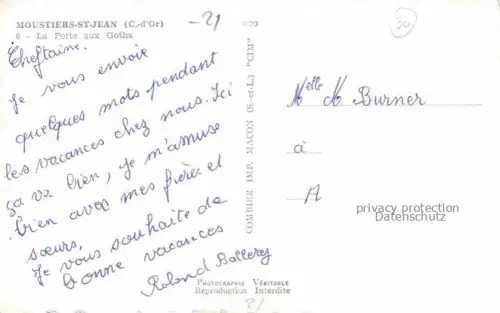 MOUSTIERS-ST-JEAN (C.-d'Or)
6 - La Porte aux Goths
-21
30
Cheftaine.
je vous envoie
quelques mots pendant
les vacances chez nous. Ici
ça va bien, je m'amuse
bien avec mes frères et
sœurs.
Je vous souhaite de
bonne vacances
Roland
PHOTOGRAPHIE VÉRITABLE
Reproduction Interdite
21
COMBIER IMP. MACON (S.-et-L.) "CIM"
Melle M. Burner
à
A
privacy protection
Datenschutz